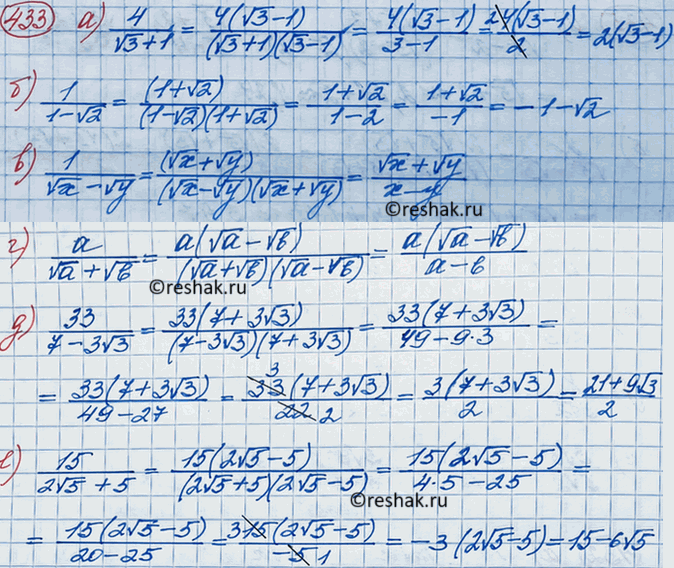 433 а) 4/(√3+1) = 4(√3-1)/((√3+1)(√3-1)) = 4(√3-1)/(3-1) = 2 4(√3-1)/2 = 2(√3-1)
б) 1/(1-√2) = (1+√2)/((1-√2)(1+√2)) = (1+√2)/(1-2) = (1+√2)/(-1) = -1-√2
в) 1/(√x-√y) = (√x+√y)/((√x-√y)(√x+√y)) = (√x+√y)/(x-y)
©reshak.ru
г) a/(√a+√b) = a(√a-√b)/((√a+√b)(√a-√b)) = a(√a-√b)/(a-b)
©reshak.ru
д) 33/(7-3√3) = 33(7+3√3)/((7-3√3)(7+3√3)) = 33(7+3√3)/(49-9·3) =
= 33(7+3√3)/(49-27) = 3 33(7+3√3)/(22 2) = 3(7+3√3)/2 = (21+9√3)/2
е) 15/(2√5+5) = 15(2√5-5)/((2√5+5)(2√5-5)) = 15(2√5-5)/(4·5-25) =
©reshak.ru
= 15(2√5-5)/(20-25) = 3 15(2√5-5)/(-5 1) = -3(2√5-5) = 15-6√5